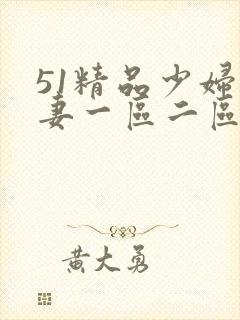 51精品少婦
妻一區二區
黃大勇